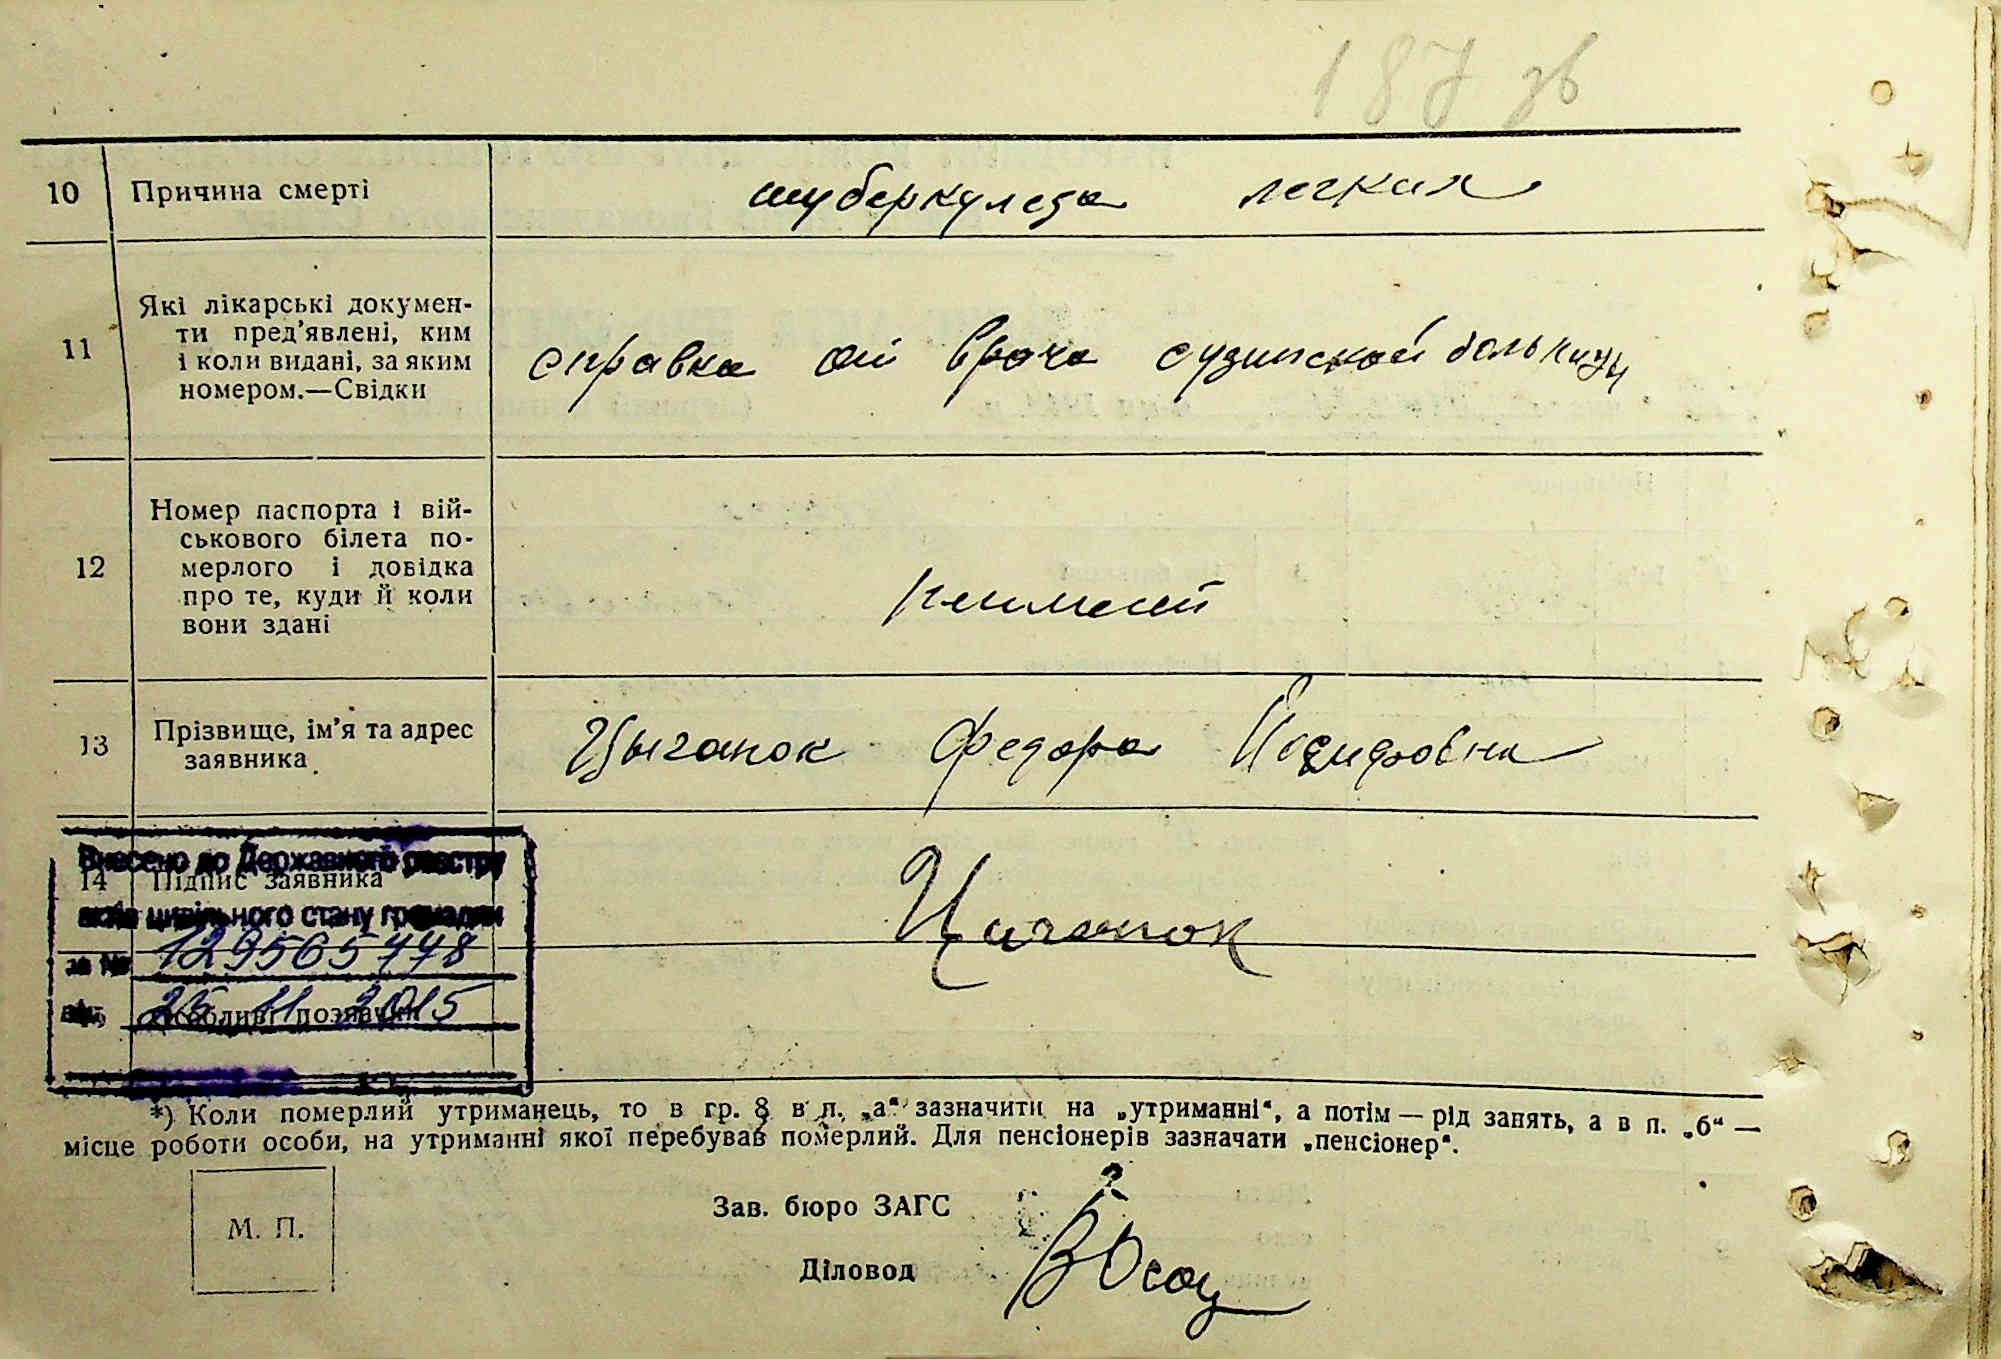 187 зв
10 Причина смерті туберкулеза легких
11 Які лікарські документи пред'явлені, ким і коли видані, за яким номером.—Свідки справка от врача судинской больницы
12 Номер паспорта і військового білета померлого і довідка про те, куди й коли вони здані
13 Прізвище, ім'я та адрес заявника Цыганок Федора Йосифовна
Внесено до Державного реєстру
14 Підпис заявника Циганок
актів цивільного стану громадян
за №
від 25 11 2015
Особливі позначки
*) Коли померлий утриманець, то в гр. 8 в п. „а“ зазначити на „утриманні“, а потім — рід занять, а в п. „б“ —
місце роботи особи, на утриманні якої перебував померлий. Для пенсіонерів зазначати „пенсіонер“.
М. П.
Зав. бюро ЗАГС
Діловод